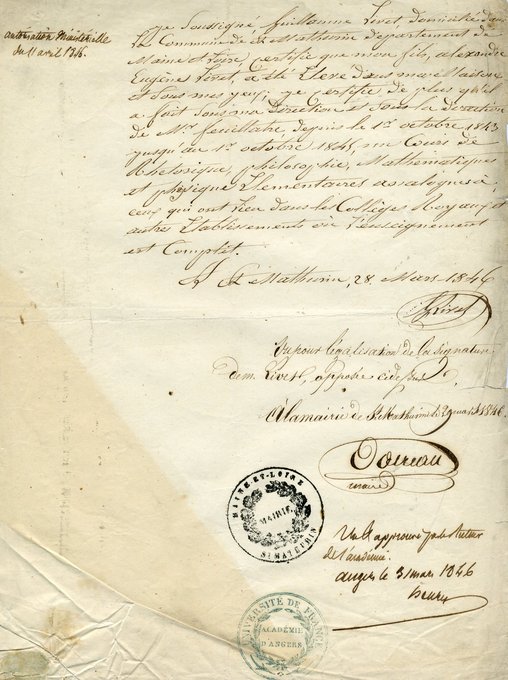 autorisation Ministérielle
du 11 avril 1846.
Je Soussigné Guillaume Livet, domicilié dans
La Commune de St Mathurin département de
Maine et Loire, Certifie que mon fils, alexandre
Eugène Livet, a été Elevé dans ma Maison
et Sous mes yeux; je certifie de plus qu'il
a fait Sous ma Direction et Sous la direction
de Mr. feuillatre, depuis le 1er octobre 1843
jusqu'au 1er octobre 1845, un Cours de
Rhétorique, philosophie, Mathématiques
et physique Elémentaires analogues à
ceux qui ont Lieu dans les Collèges Royaux et
autres Etablissements où l'enseignement
est Complet.
A St Mathurin, 28 Mars 1846
Livet
Vu pour légalisation de la signature
de m. Livet, apposée ci dessus
A la mairie de St Mathurin le 29 mars 1846
maire
MAINE-ET-LOIRE
MAIRIE
ST MATHURIN
Vu et approuvé par le Recteur
de l'académie.
angers le 31 mars 1846
henry
UNIVERSITÉ DE FRANCE
ACADÉMIE
D'ANGERS